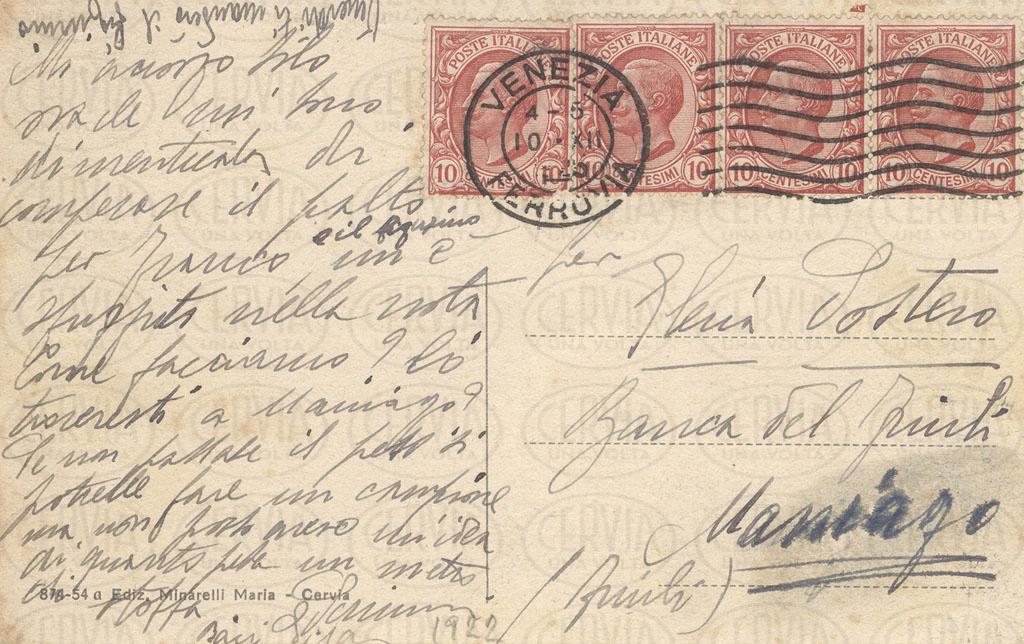 Mi accorgo
ora che mi sono
dimenticata di
comperare il palto
e il figurino
per Franco mi è
sfuggito nella nota
Come facciamo? Lo
troveresti a Maniago?
Se non passasse il peso si
potrebbe fare un campione
ma non posso avere un'idea
di quanto pesa un metro
di stoffa
Baci
1922
POSTE ITALIANE
POSTE ITALIANE
POSTE ITALIANE
POSTE ITALIANE
10
10 CENTESIMI 10
10 CENTESIMI 10
10 CENTESIMI 10
VENEZIA
10 XII
FERROVIA
per
Elena Postero
Banca del Friuli
Maniago
(Friuli)
876-54 a Ediz. Minarelli Maria - Cervia
CERVIA
UNA VOLTA